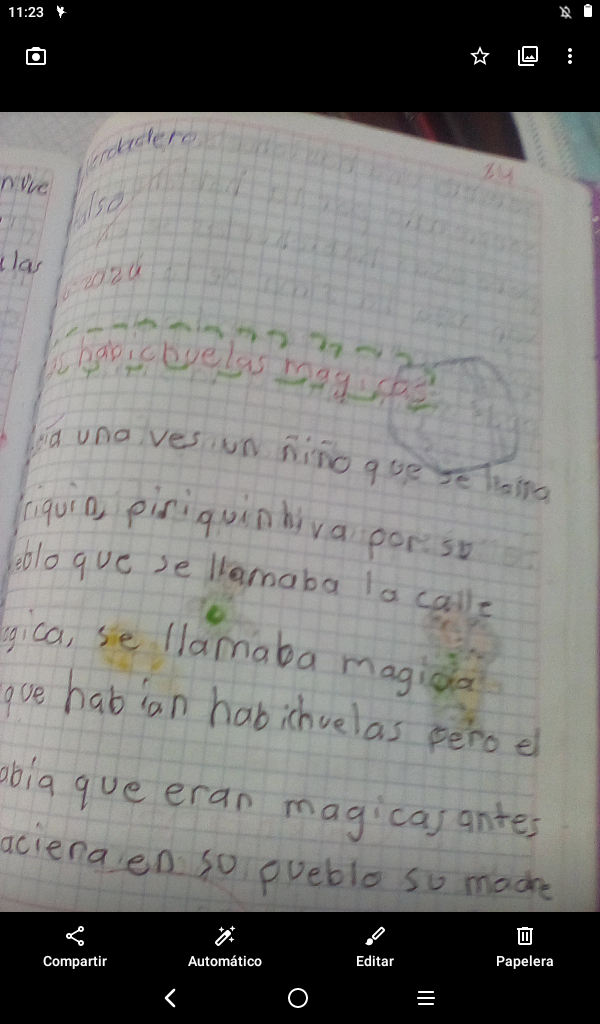 11:23
nive
las
84
2024
habichuelas magicas
una ves un niño que se llama
riquin piriquin hiva por su
eblo que se llamaba la calle
gica, se llamaba magica
que habian habichuelas pero el
abia que eran magicas antes
aciera en su pueblo su madre
Compartir
Automático
Editar
Papelera